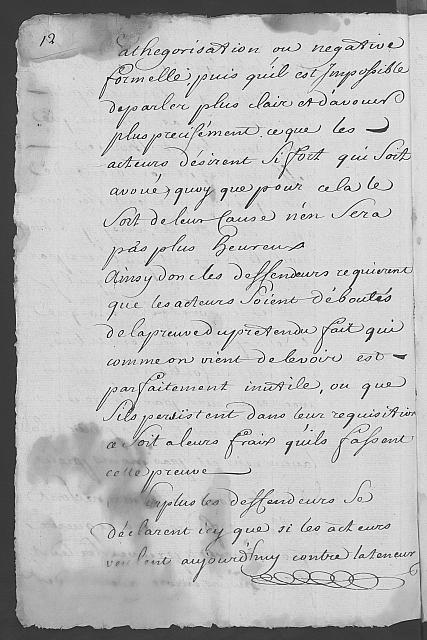 12
Cathegorisation ou negative
formelle, puis qu'il est Impossible
de parler plus clair et d'avouer
plus precisément ce que les
acteurs désirent Si fort qui Soit
avoué, quoy que pour cela le
Sort de leur Cause n'en Sera
pas plus heureux
Ainsy donc les deffendeurs requierent
que les acteurs Soient déboutés
de la preuve du pretendu fait qui
comme on vient de le voir est
parfaitement inutile, ou que
S'ils persistent dans leur requisition
ce Soit a leurs fraix qu'ils fassent
cette preuve
plus les deffendeurs Se
déclarent icy que si les acteurs
veulent aujourd'huy contre la teneur